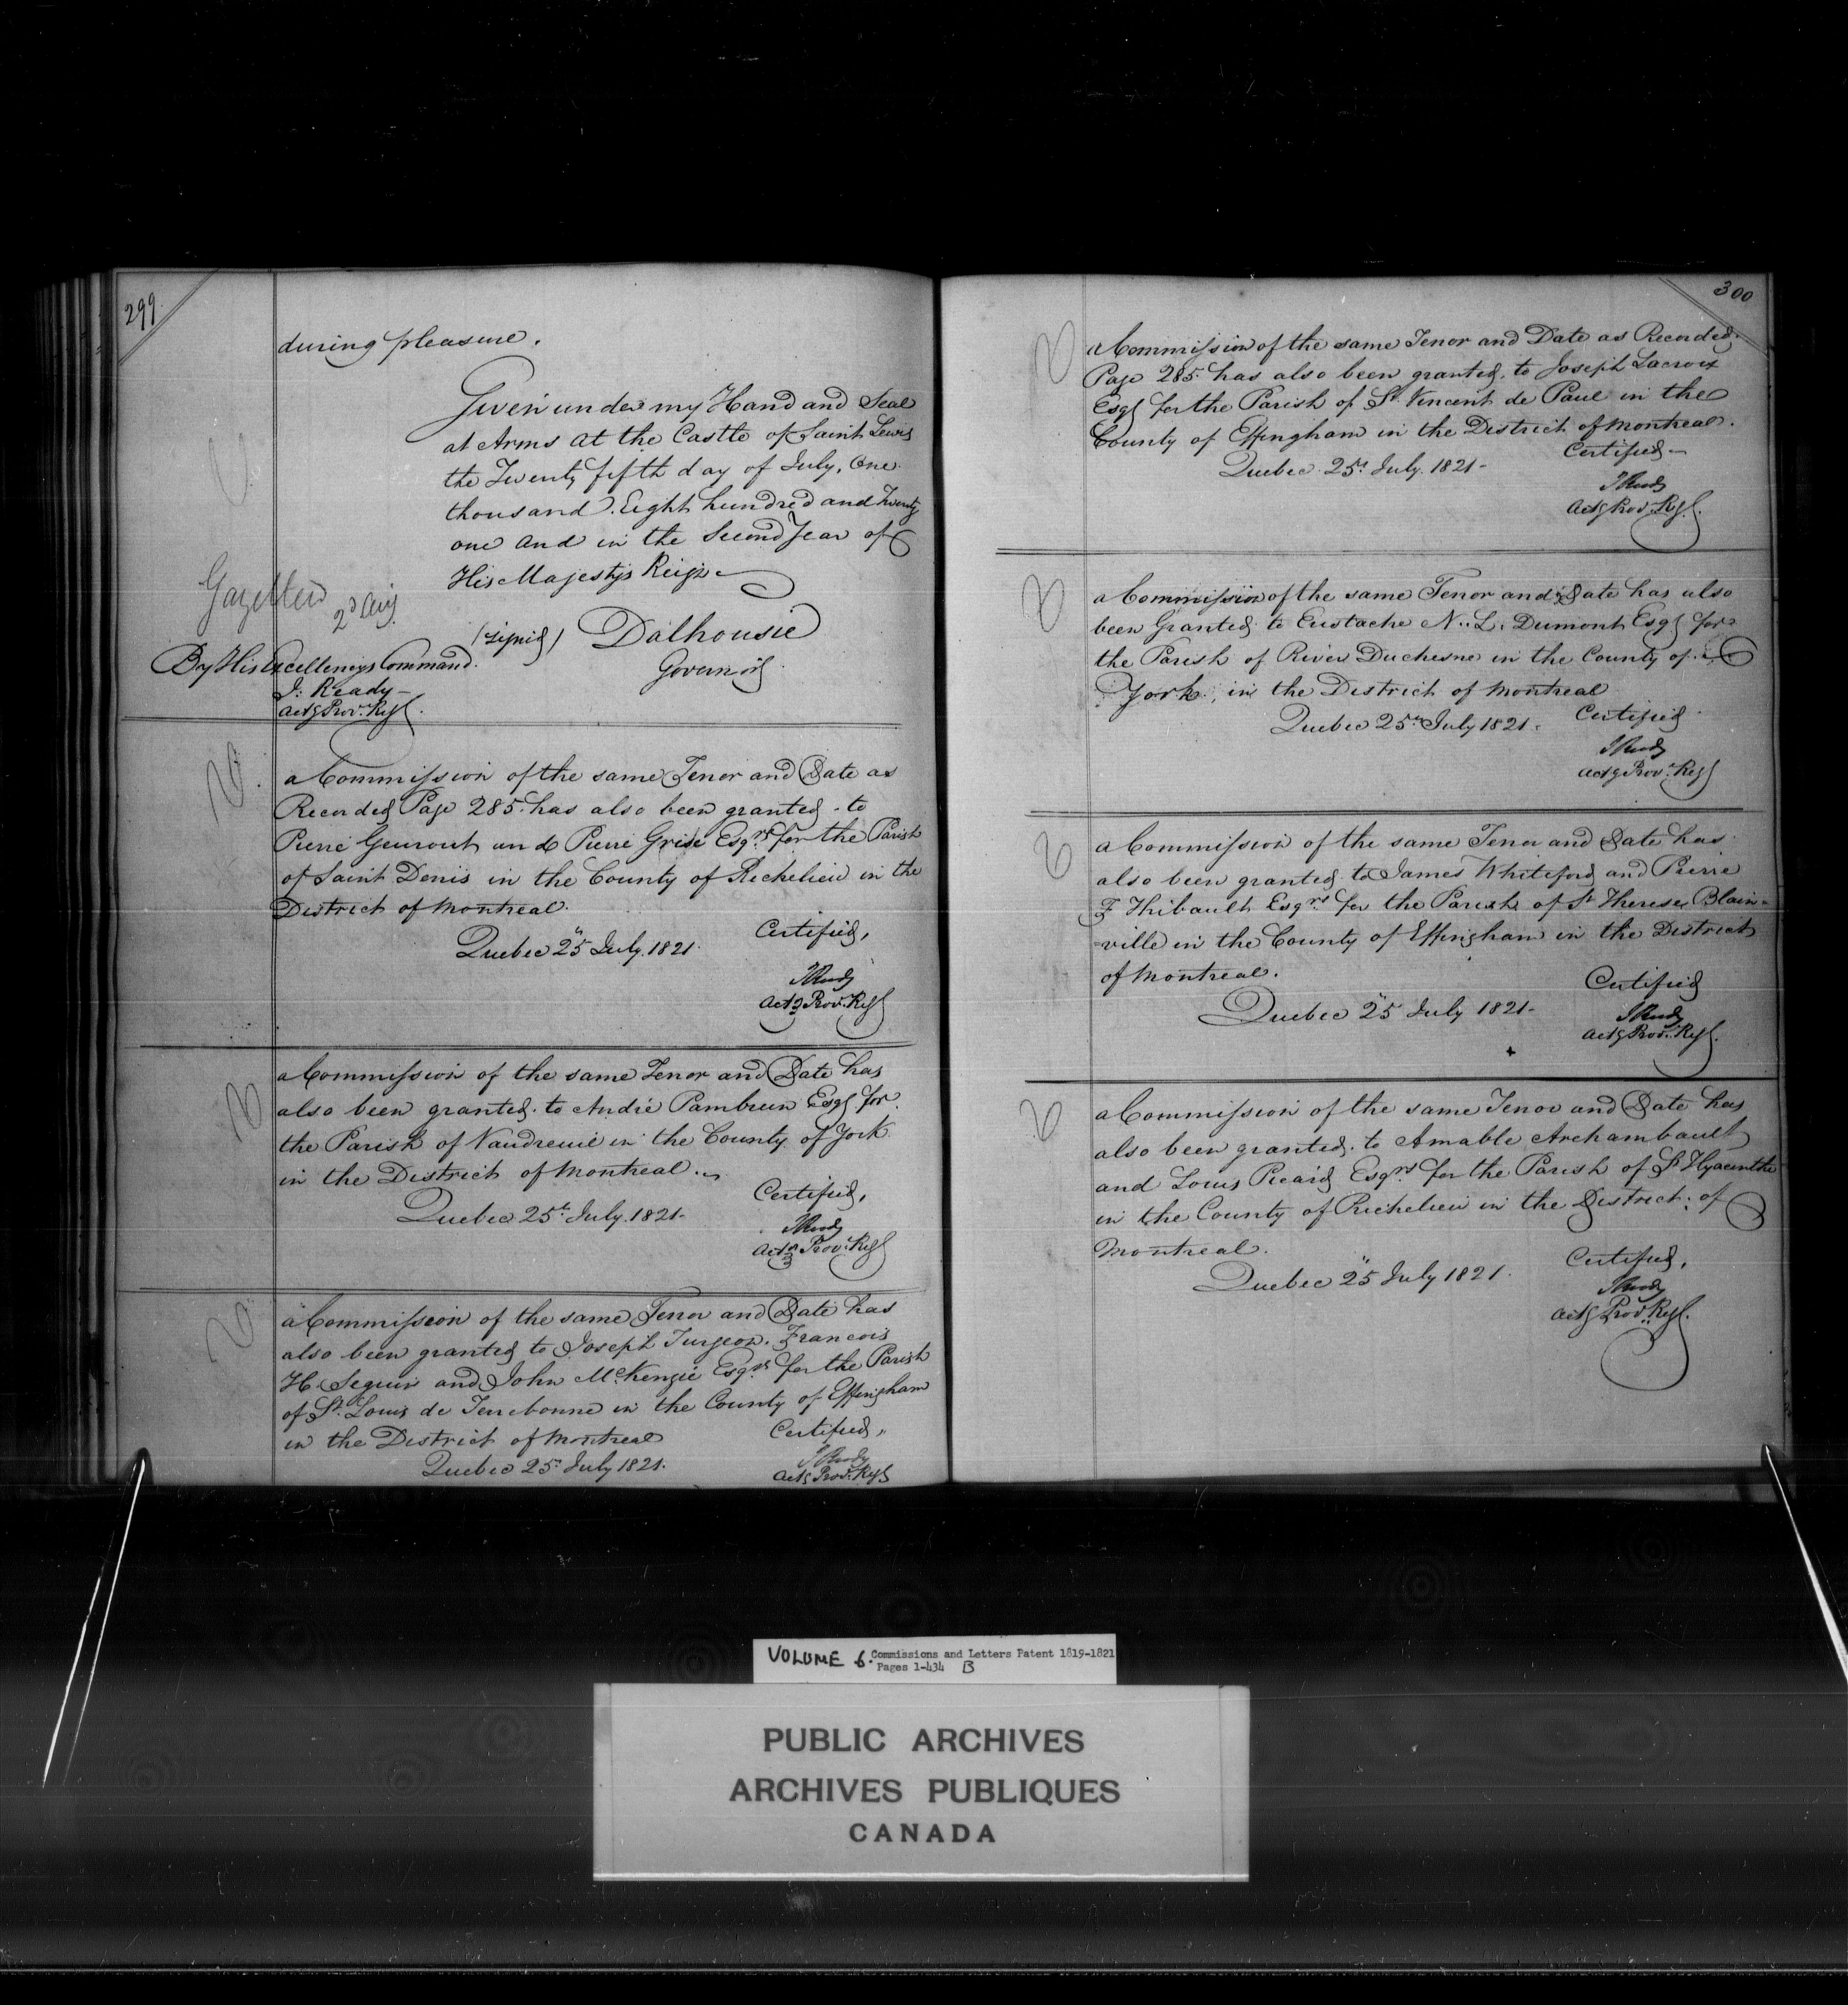 299.
during pleasure.
Given under my Hand and Seal
at Arms at the Castle of Saint Lewis
the Twenty fifth day of July, One
thousand Eight hundred and Twenty
one and in the Second Year of
His Majestys Reign
Gazetted
2d Aug.
(Signed) Dalhousie
Governor
By His Excellencys Command.
J: Ready
Actg Prov. Regr.
a Commission of the same Tenor and Date as
Recorded Page 285. has also been granted to
Pierre and Pierre Grisé Esqrs for the Parish
of Saint Denis in the County of Richelieu in the
District of Montreal.
Certified,
Quebec 25 July. 1821.
JReady
Actg Prov. Regr
a Commission of the same Tenor and Date has
also been granted. to André Pambrun Esqr for.
the Parish of Vaudreuil in the County of York
in the District of Montreal.
Certified,
Quebec 25t. July. 1821.
JReady
Actg Prov. Regr
a Commission of the same Tenor and Date has
also been granted to Joseph Turgeon. Francois
H. Seguin and John McKenzie Esqrs for the Parish
of St. Louis de Terrebonne in the County of Effingham
in the District of Montreal
Certified,
Quebec 25. July 1821.
JReady
Actg Prov. Regr
300
a Commission of the same Tenor and Date as Recorded
Page 285. has also been granted, to Joseph Lacroix
Esqr for the Parish of St. Vincent de Paul in the
County of Effingham in the District of Montreal.
Certified
Quebec. 25t July. 1821
JReady
Actg Prov. Regr.
a Commission of the same Tenor and Date has also
been Granted to Eustache N. L. Dumont Esqr for
the Parish of River Duchesne in the County of
York, in the District of Montreal
Certified
Quebec 25th July 1821.
JReady
Actg Prov. Regr
a Commission of the same Tenor and Date has
also been granted to James Whiteford and Pierre
F Thibault Esqrs for the Parish of St Therese Blain=
=ville in the County of Effingham in the District
of Montreal.
Certified
Quebec 25 July 1821.
JReady
Actg Prov. Regr.
a Commission of the same Tenor and Date has
also been granted. to Amable Archambault
and Louis Picard Esqrs for the Parish of St Hyacinthe
in the County of Richelieu in the District of
Montreal.
Certified,
Quebec 25 July 1821.
JReady
Actg Prov. Regr.
VOLUME 6. Commissions and Letters Patent 1819-1821
Pages 1-434 B
PUBLIC ARCHIVES
ARCHIVES PUBLIQUES
CANADA